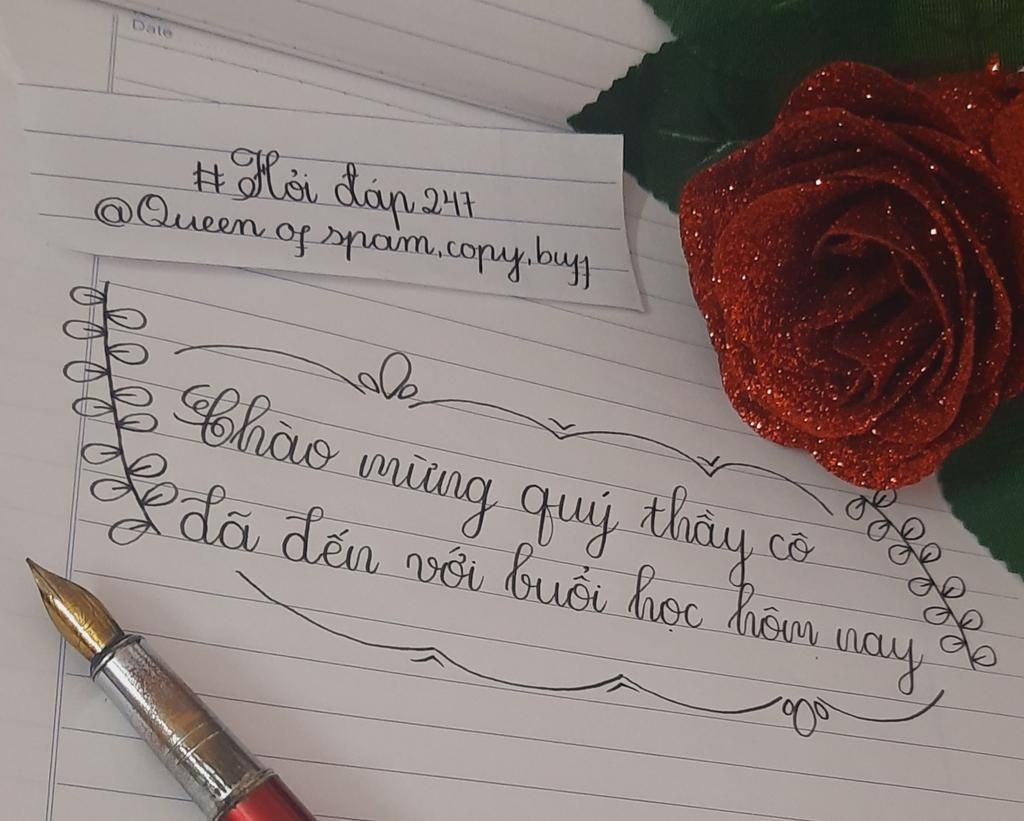 Date
#Hỏi đáp 247
@Queen of spam, copy, buff
Chào mừng quý thầy cô
đã đến với buổi học hôm nay